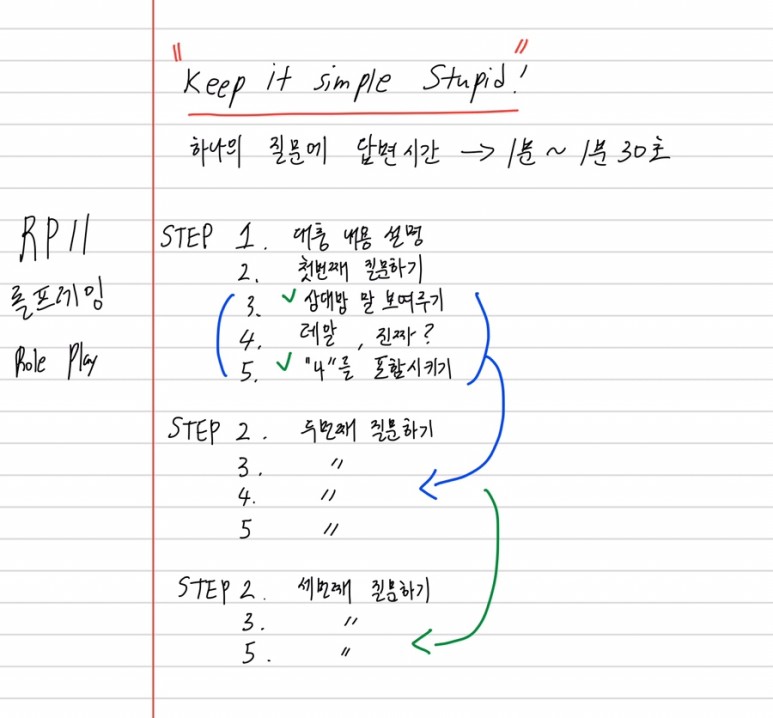 "Keep it simple Stupid!"
하나의 질문에 답변시간 → 1분 ~ 1분 30초
RP11
롤프레잉
Role Play
STEP 1. 대충 내용 설명
2. 첫번째 질문하기
( 3. ✓ 상대방 말 보여주기 )
4. 데말, 진짜?
5. ✓ "4"를 포함시키기
STEP 2. 두번째 질문하기
3. 〃
4. 〃
5 〃
STEP 2. 세번째 질문하기
3. 〃
5. 〃